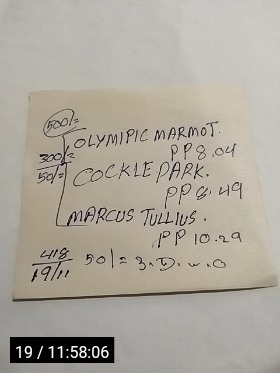 500/=
OLYMIPIC MARMOT.
300/=
PP 8.04
50/=
COCKLE PARK.
PP 8.49
MARCUS TULLIUS.
PP 10.29
418
19/11
50/= 3. D. w. O
19 / 11:58:06